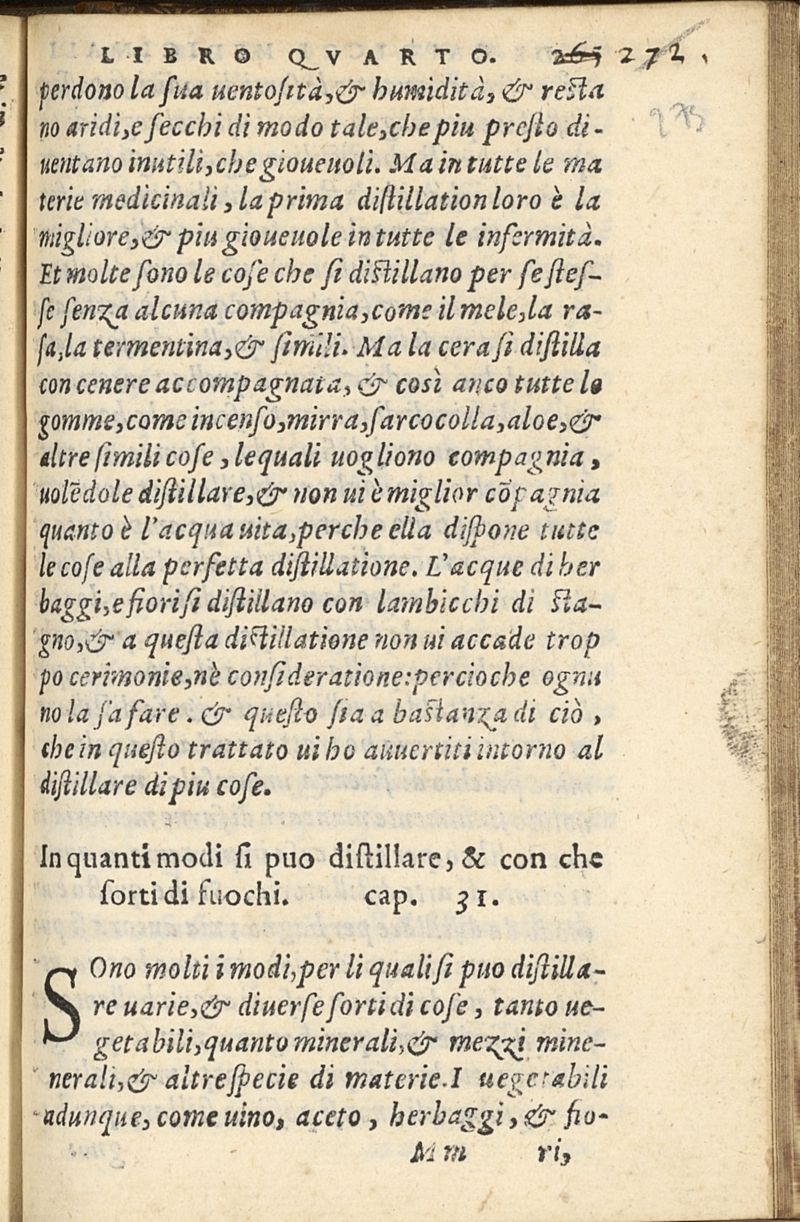 LIBRO QVARTO. 265 272,
273
perdono la sua uentosità,& humidità, & resta
no aridi,e secchi di modo tale,che piu presto di-
uentano inutili,che gioueuoli. Ma in tutte le ma
terie medicinali, la prima distillation loro è la
migliore,& piu gioueuole in tutte le infermità.
Et molte sono le cose che si distillano per se stes-
se senza alcuna compagnia,come il mele,la ra-
sa,la termentina,& simili. Ma la cera si distilla
con cenere accompagnata, & così anco tutte le
gomme,come incenso,mirra,sarcocolla,aloe,&
altre simili cose, lequali uogliono compagnia,
uolēdole distillare,& non ui è miglior cōpagnia
quanto è l'acqua uita,perche ella dispone tutte
le cose alla perfetta distillatione. L'acque di her
baggi,e fiori si distillano con lambicchi di sta-
gno,& a questa distillatione non ui accade trop
po cerimonie,nè consideratione:percioche ognu
no la sa fare. & questo sia a bastanza di ciò,
che in questo trattato ui ho auuertiti intorno al
distillare di piu cose.
In quanti modi si puo distillare, & con che
sorti di fuochi. cap. 31.
SOno molti i modi,per li quali si puo distilla-
re uarie,& diuerse sorti di cose, tanto ue-
getabili,quanto minerali,& mezzi mine-
nerali,& altre specie di materie.I uegetabili
adunque, come uino, aceto, herbaggi, & fio-
Mm ri,